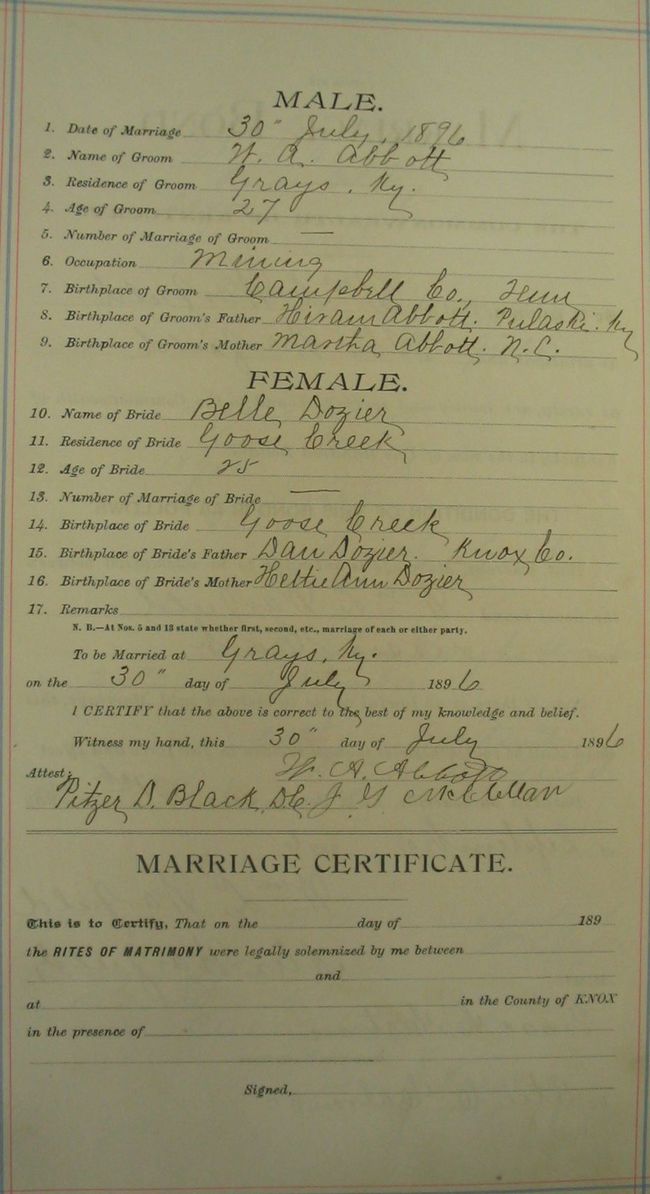 MALE.
1. Date of Marriage 30" July, 1896
2. Name of Groom W. A. Abbott
3. Residence of Groom Grays, Ky.
4. Age of Groom 27
5. Number of Marriage of Groom —
6. Occupation Mining
7. Birthplace of Groom Campbell Co., Tenn
8. Birthplace of Groom's Father Hiram Abbott. Pulaski. Ky
9. Birthplace of Groom's Mother Martha Abbott. N.C.
FEMALE.
10. Name of Bride Belle Dozier
11. Residence of Bride Goose Creek
12. Age of Bride 25
13. Number of Marriage of Bride —
14. Birthplace of Bride Goose Creek
15. Birthplace of Bride's Father Dan Dozier. Knox Co.
16. Birthplace of Bride's Mother Hettie Ann Dozier
17. Remarks
N. B.—At Nos. 5 and 13 state whether first, second, etc., marriage of each or either party.
To be Married at Grays, Ky.
on the 30" day of July 1896
I CERTIFY that the above is correct to the best of my knowledge and belief.
Witness my hand, this 30" day of July 1896
W. A. Abbott
Attest:
Pitzer D. Black, D.C. J. G. McClellan
MARRIAGE CERTIFICATE.
This is to Certify, That on the day of 189
the RITES OF MATRIMONY were legally solemnized by me between
and
at in the County of KNOX
in the presence of
Signed,